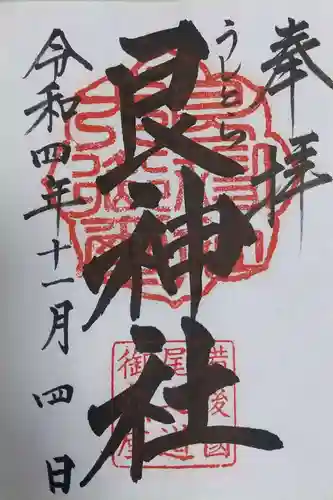 奉拝
うしとら
艮神社
令和四年十一月四日
備後國
尾道